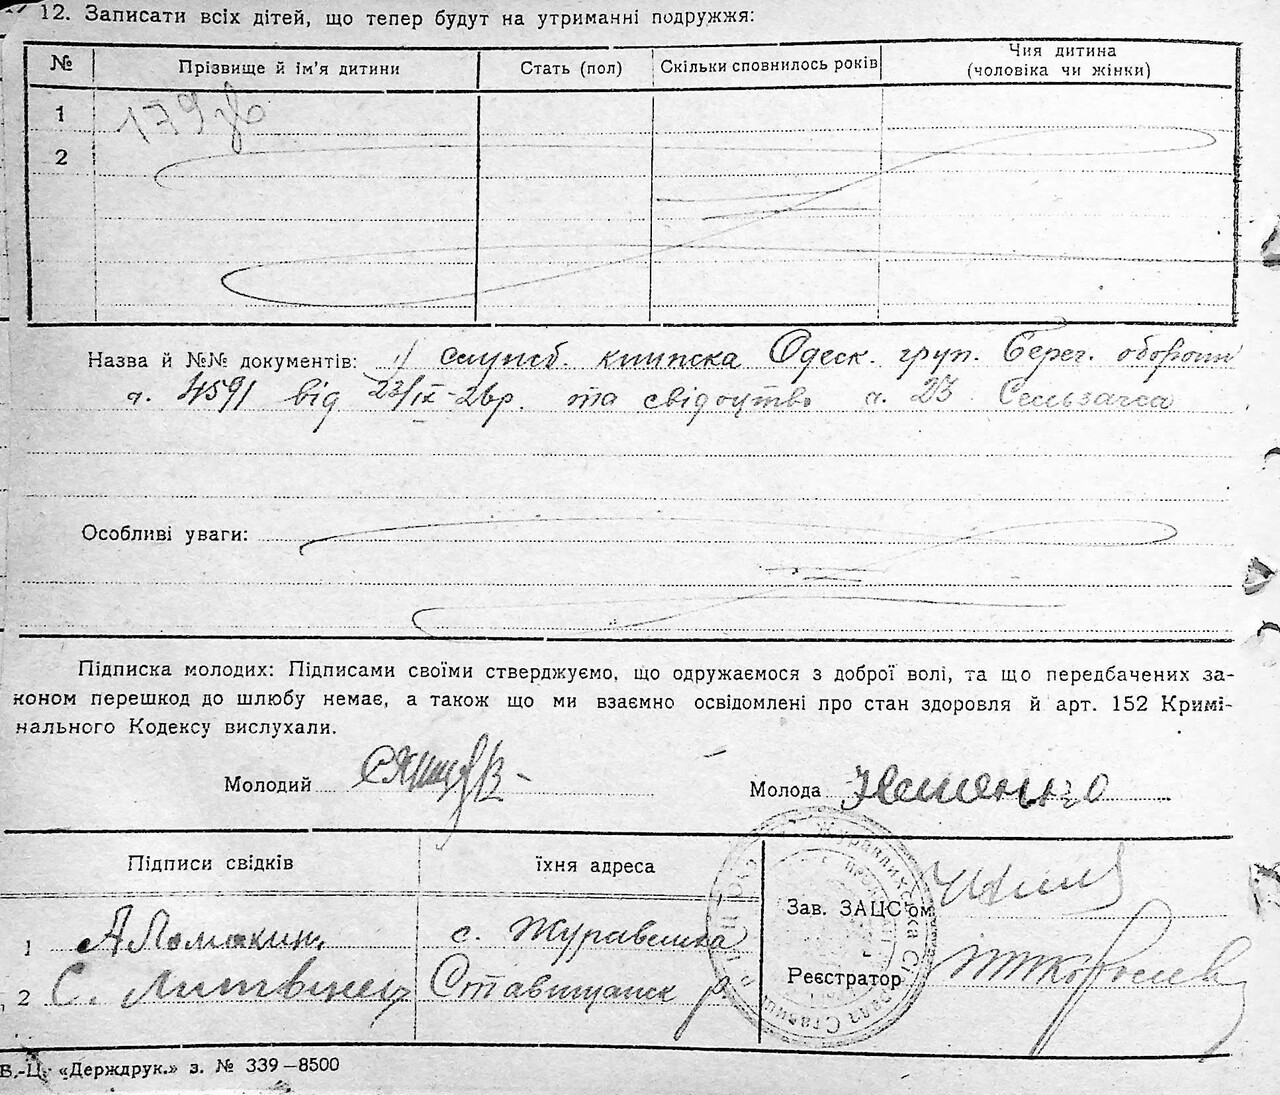 12. Записати всіх дітей, що тепер будут на утриманні подружжя:
№ Прізвище й ім'я дитини Стать (пол) Скільки сповнилось років Чия дитина (чоловіка чи жінки)
1 179
2
Назва й №№ документів: 1) служб. книжка Одеск. груп. Берег. оборони
4591 від 23/IX-26р. та свідоцтво 23
Особливі уваги:
Підписка молодих: Підписами своїми стверджуємо, що одружаємося з доброї волі, та що передбачених за-
коном перешкод до шлюбу немає, а також що ми взаємно освідомлені про стан здоровля й арт. 152 Кримі-
нального Кодексу вислухали.
Молодий Молода
Підписи свідків їхня адреса
Зав. ЗАЦС'ом
1 А Ломакин с. Журавлиха
Реєстратор
2 С. Литвінец Ставищанск р
В.-Ц. «Держдрук.» з. № 339—8500